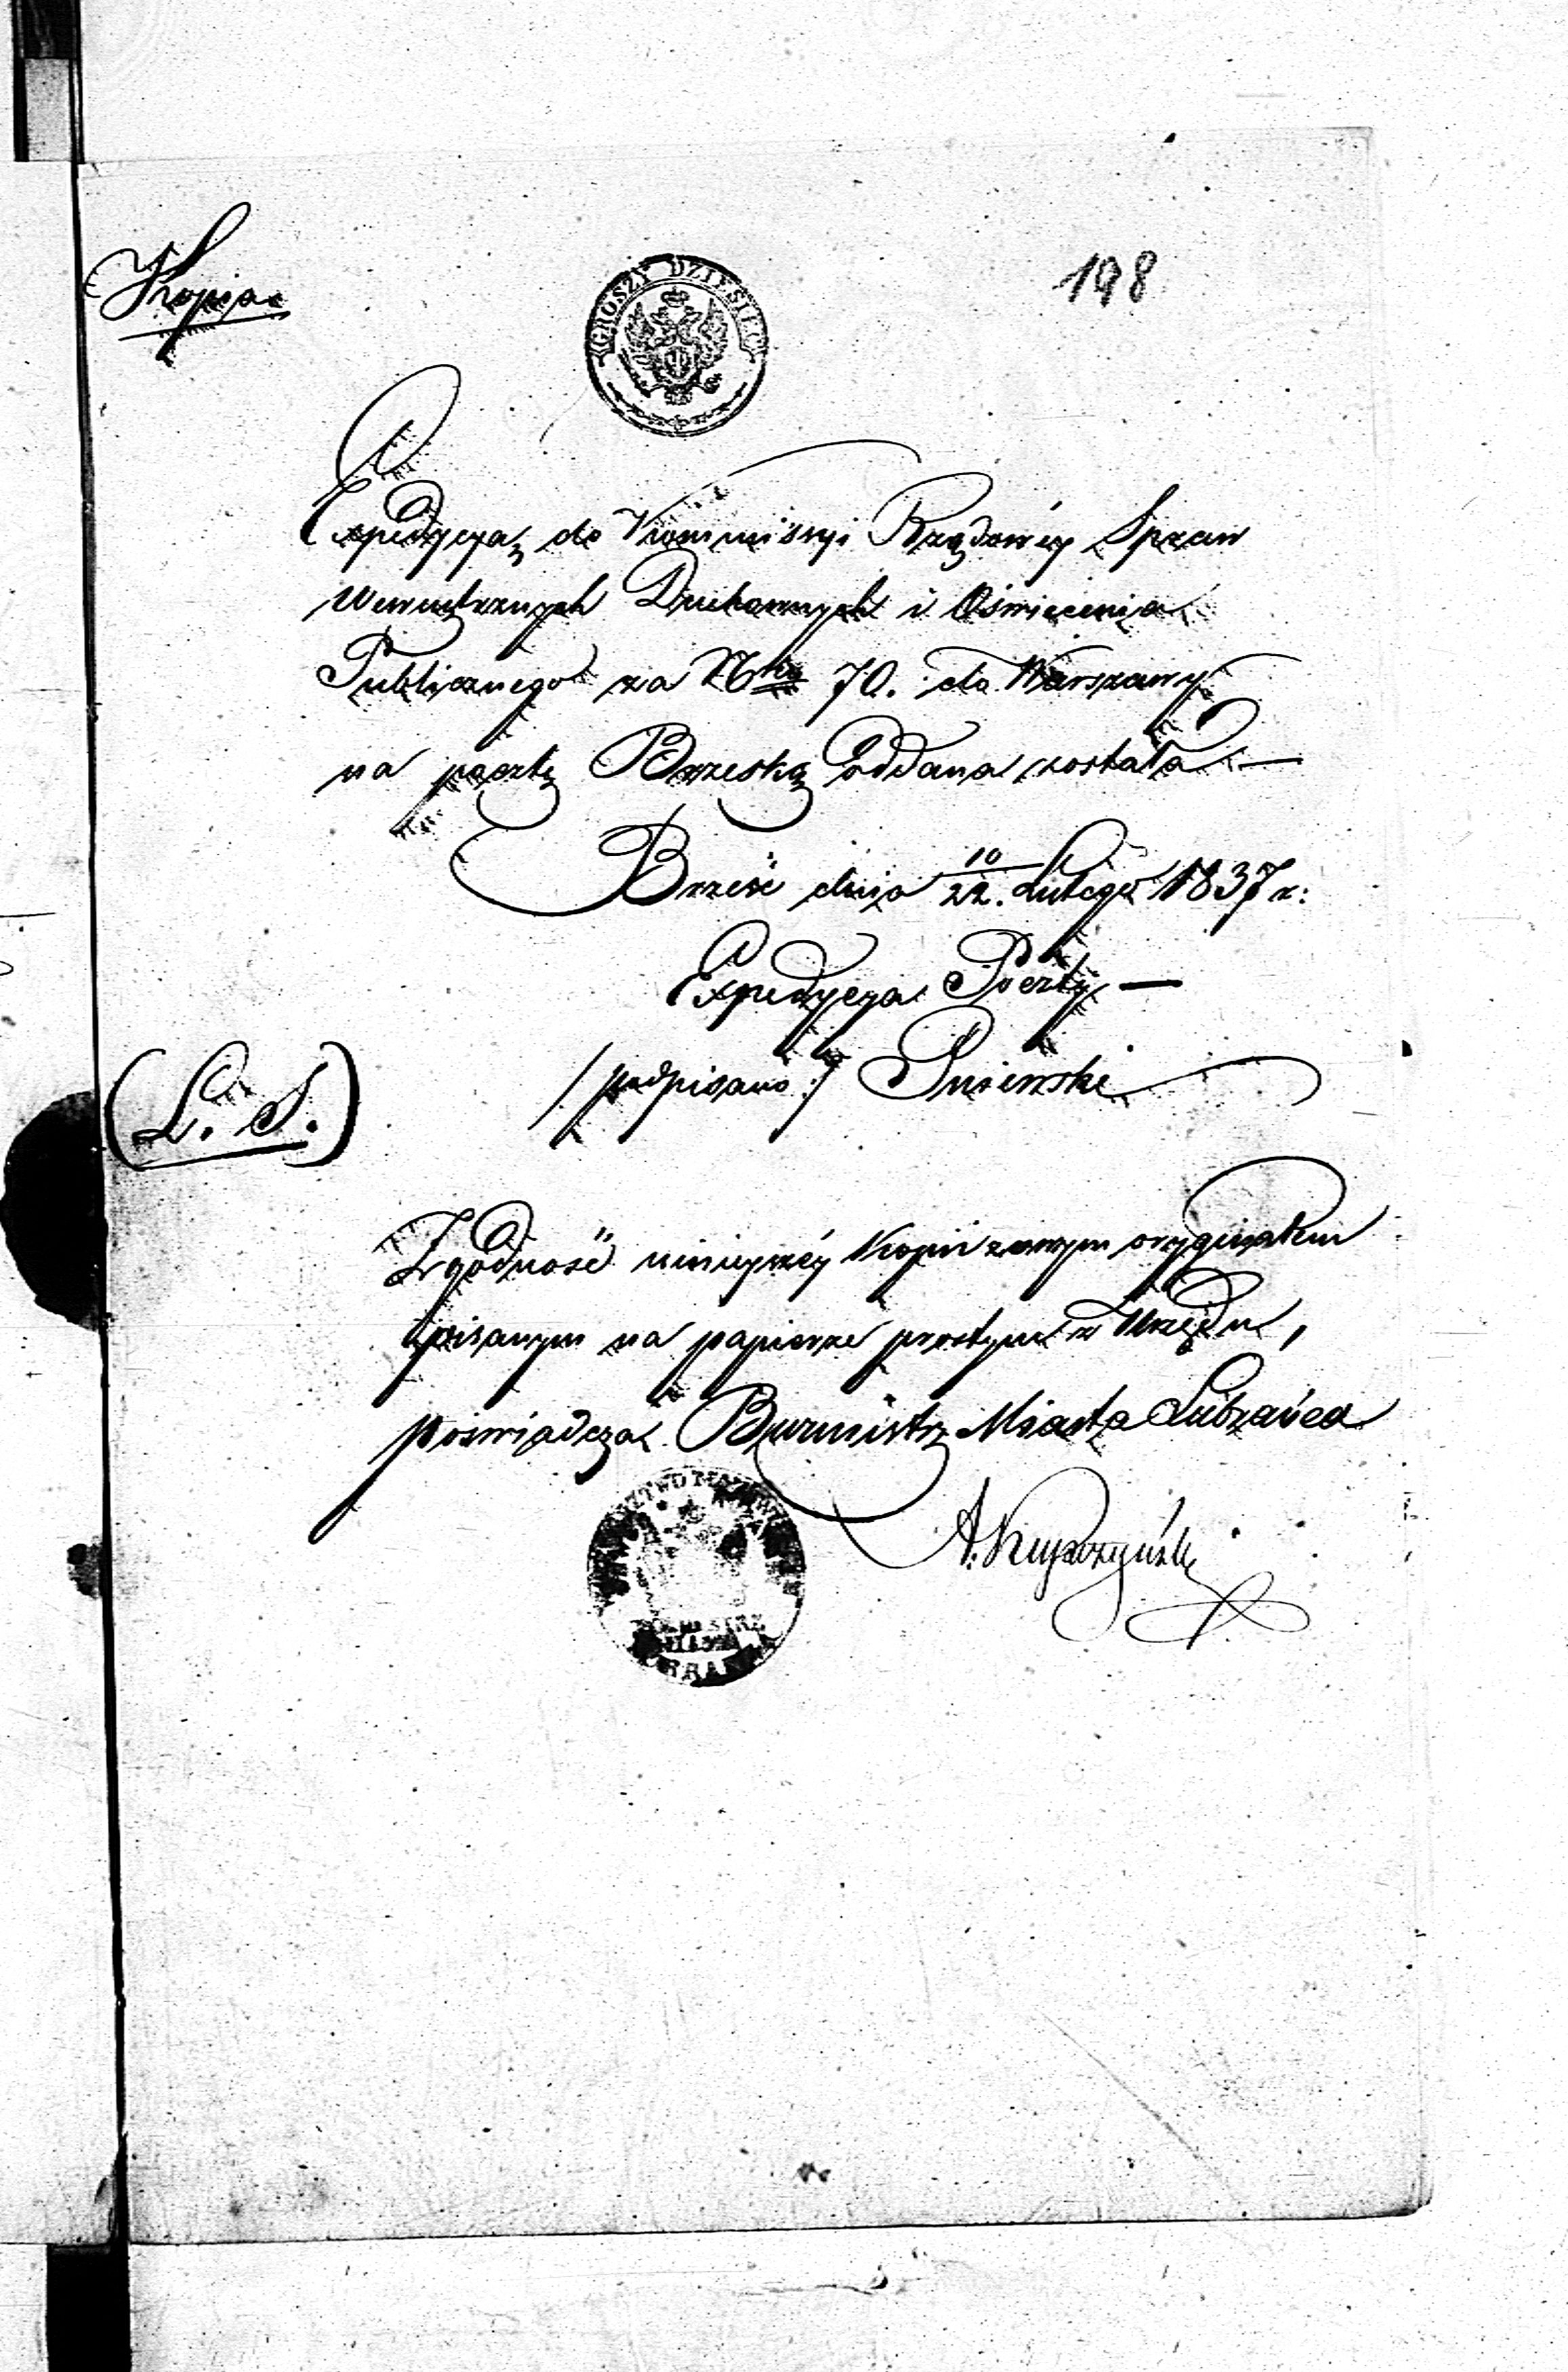 Kopia
198
GROSZY DZIESIĘĆ
Expedycya do Kommissyi Rządowéy Spraw
Wewnętrznych Duchownych i Oświecenia
Publicznego za N<sup>rem</sup> 70. do Warszawy
na pocztę Brzeską oddana została —
Brześć dnia 10/22. Lutego 1837 r:
Expedycya Poczty —
(L. S.)
/podpisano:/
Zgodność ninieyszéy Kopii z samym oryginałem
pisanym na papierze prostym z Urzędu,
poświadcza Burmistrz Miasta Lubrańca